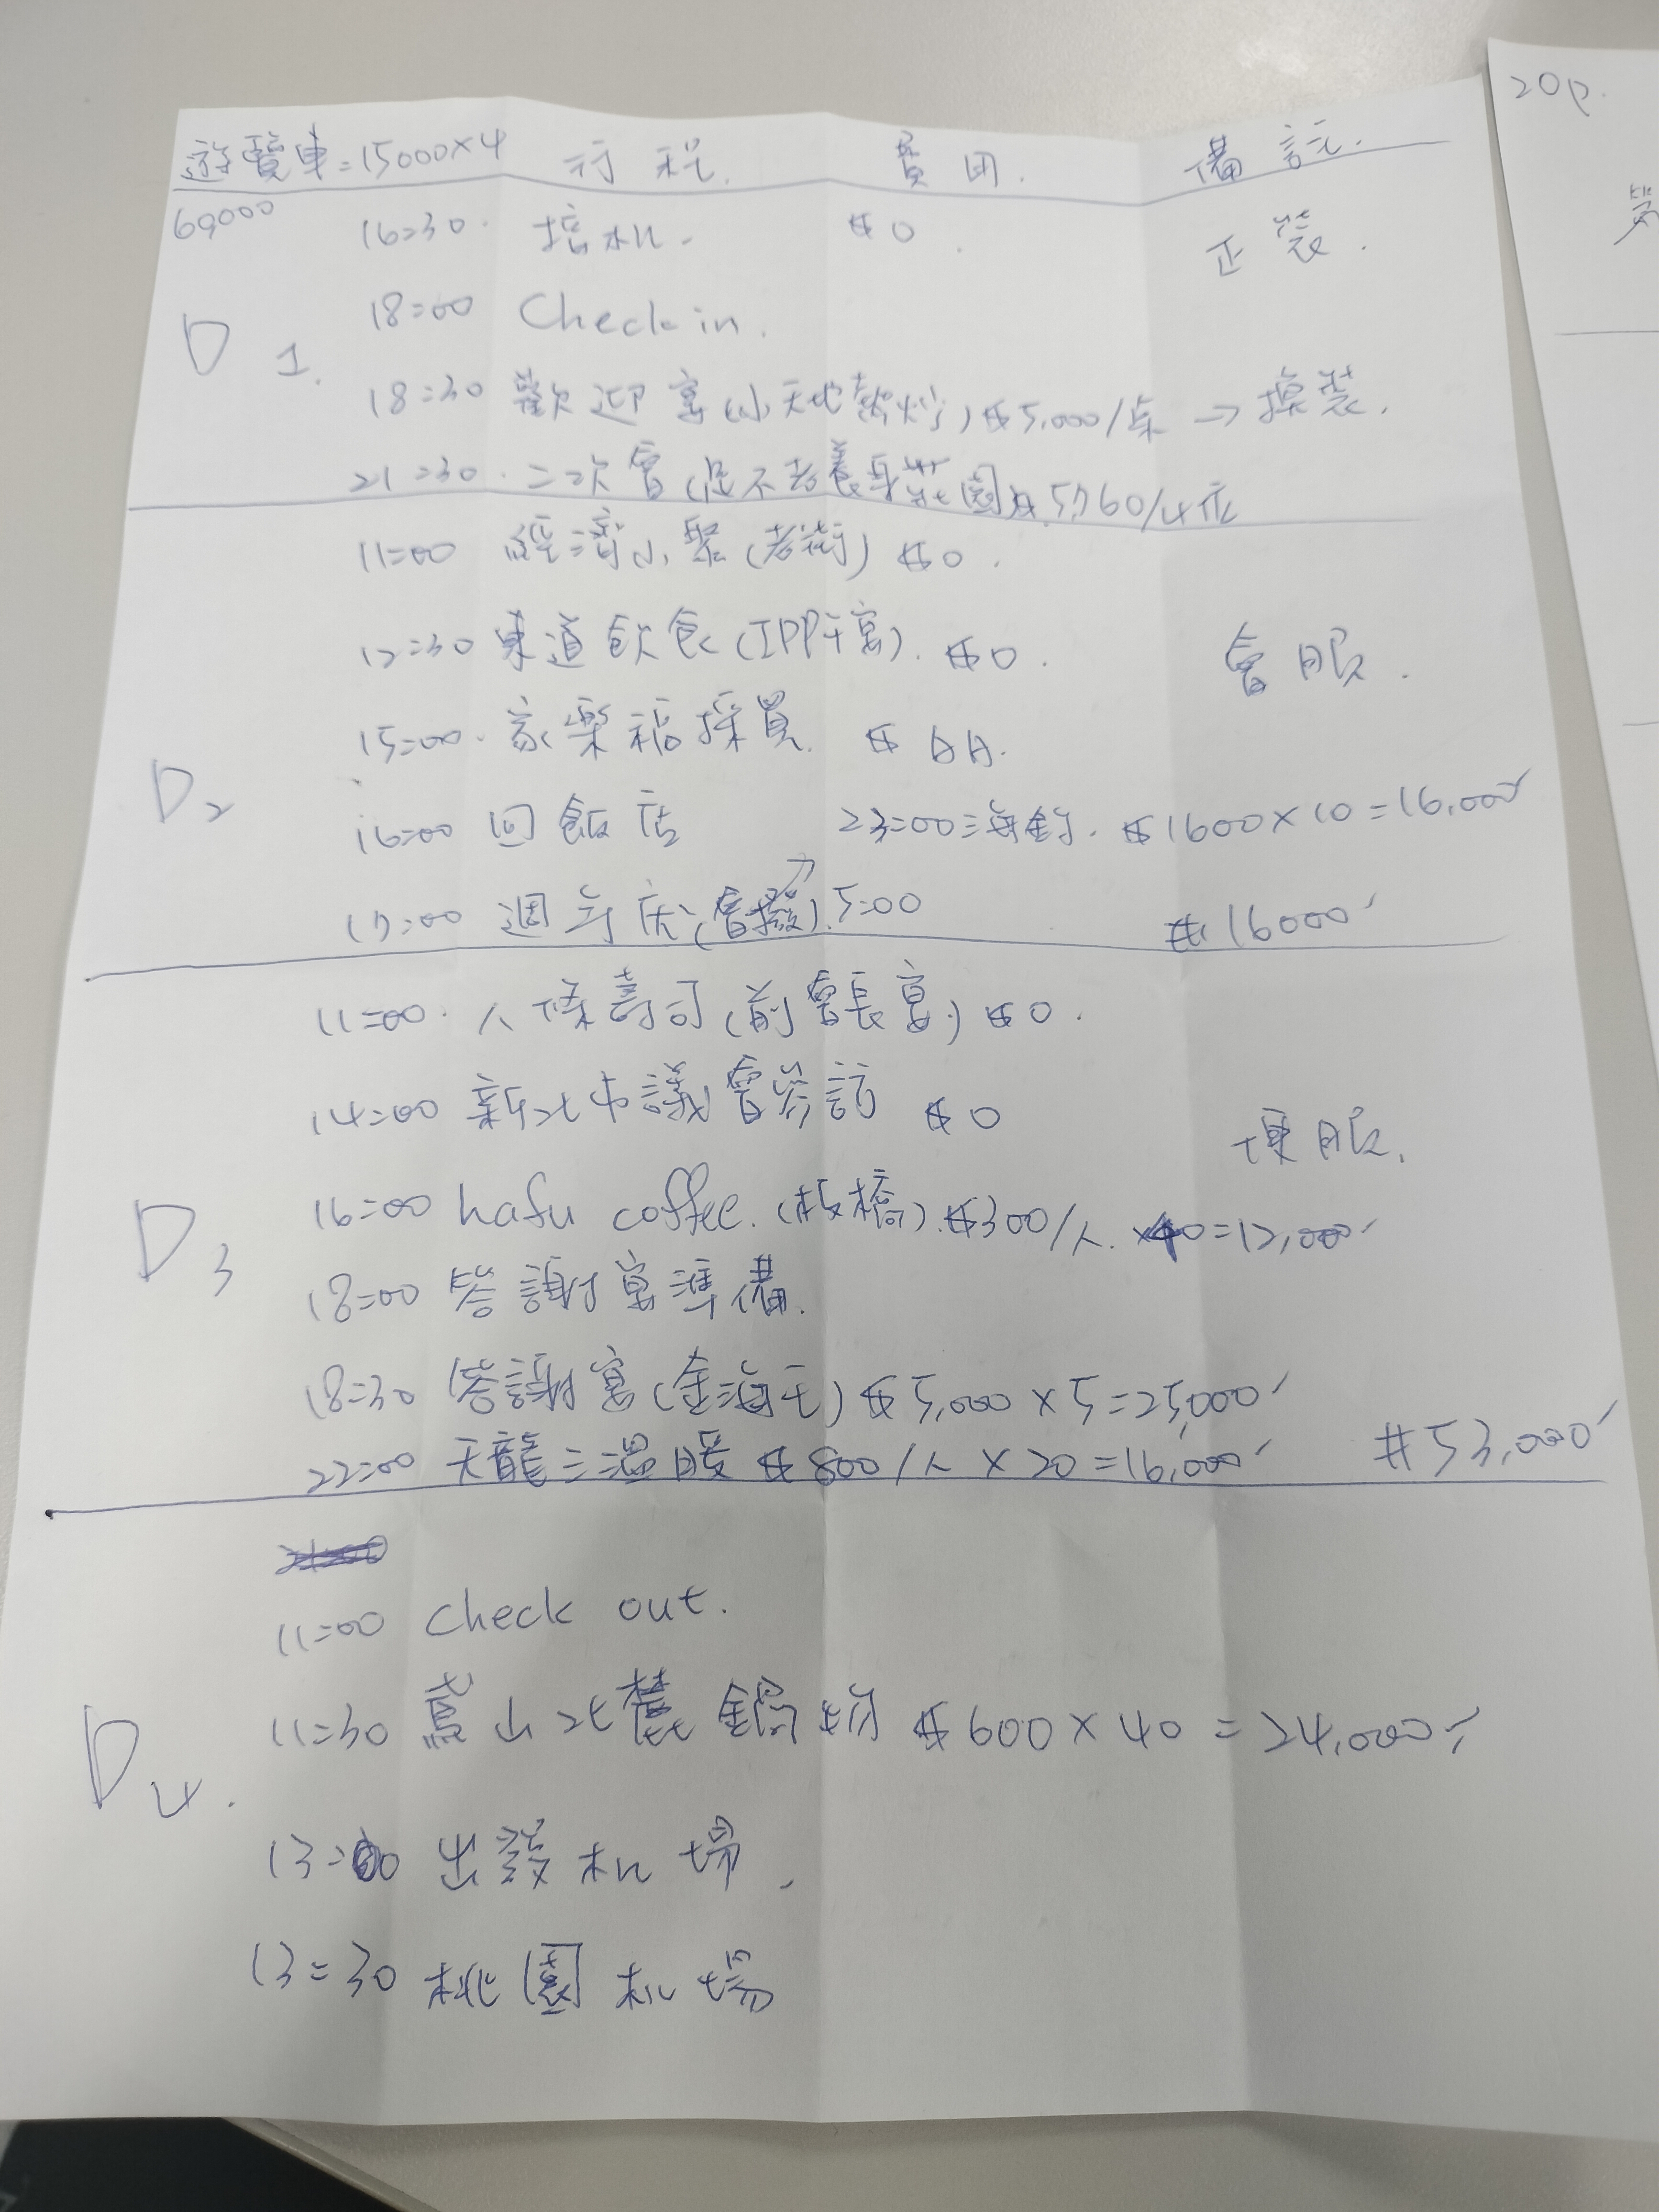 遊覽車=15000×4 行程. 費用. 備註.
60000
D1.
16=30. 接机. $0. 正裝.
18=00 Check in.
18=30 歡迎宴(小天地熱炒) $5,000/桌 → 換裝.
21=30. 二次會(足不老養身莊園) $5760/4位
D2
11=00 經濟小聚(老街) $0.
12=30 東道飲食(IPP午宴). $0. 會服.
15=00. 家樂福採買. $AA.
16=00 回飯店 23=00 海釣. $1600×10=16,000
17=00 週年庆(會撥) 5=00 #16000
D3
11=00. 八條壽司(前會長宴) $0.
14=00 新北市議會參訪 $0 便服.
16=00 hafu coffee. (板橋). $300/人. ×40=12,000
18=00 答謝宴準備.
18=30 答謝宴(金海王) $5,000×5=25,000
22=00 天龍三溫暖 $800/人×20=16,000 #53,000
D4.
11=00 Check out.
11=30 鳶山北農鍋物 $600×40=24,000
13=00 出發机場.
13=30 桃園机場
20p.